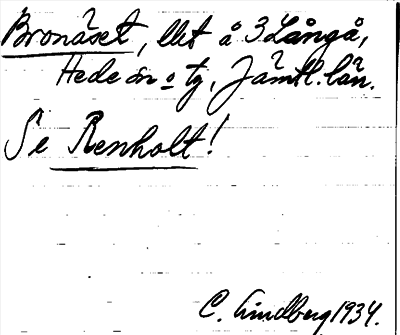 Bronäset, llit å 3 Långå,
Hede sn o tg, Jämtl. län.
Se Renholt!
C. Lindberg 1934.